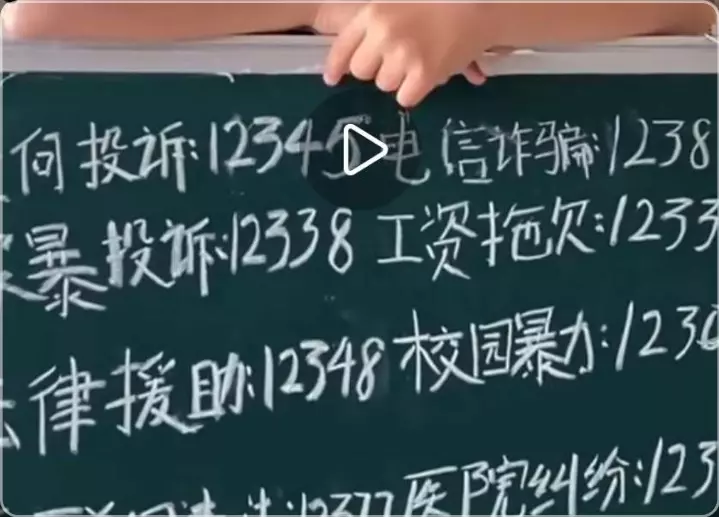 何投诉:12345 电信诈骗:1238
暴投诉:12338 工资拖欠:1233
律援助:12348 校园暴力:123
12377 医院纠纷:123